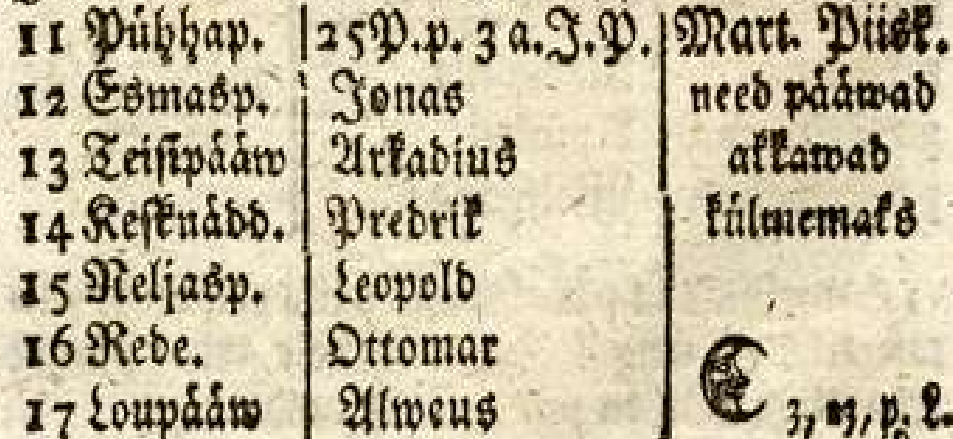 11 Pühhap. 25 P. p. 3 a. J. P. Mart. Piisk.
12 Esmasp. Jonas need pääwad
13 Teisipääw Arkadius akkawad
14 Kesknädd. Predrik külmemaks
15 Neljasp. Leopold
16 Rede. Ottomar
17 Loupääw Alweus 3, m, p. L.